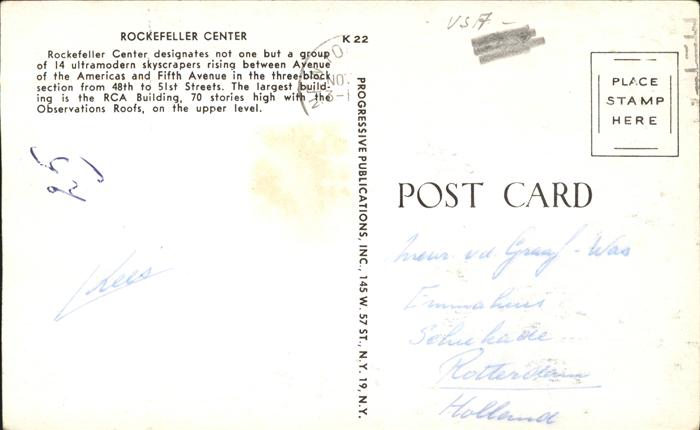 ROCKEFELLER CENTER
Rockefeller Center designates not one but a group
of 14 ultramodern skyscrapers rising between Avenue
of the Americas and Fifth Avenue in the three-block
section from 48th to 51st Streets. The largest build-
ing is the RCA Building, 70 stories high with the
Observations Roofs, on the upper level.
K 22
Kees
PROGRESSIVE PUBLICATIONS, INC., 145 W. 57 ST., N.Y. 19, N.Y.
USA -
PLACE
STAMP
HERE
POST CARD
Mevr. v.d. Graaf - Was
Emmahuis
Schiekade
Rotterdam
Holland